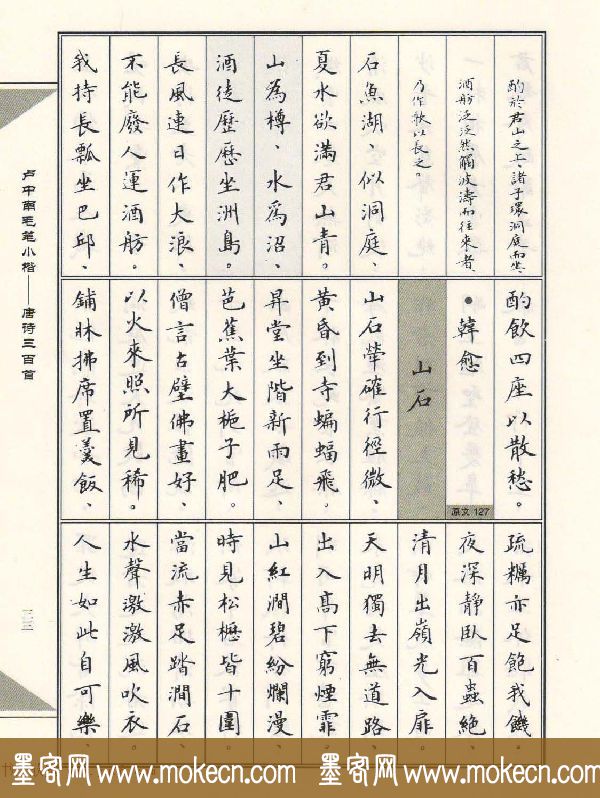 酌於君山之上、諸子環洞庭而坐、
酒舫泛泛然觸波濤而往來者、
乃作歌以長之。
石魚湖、似洞庭、
夏水欲滿君山青。
山為樽、水爲沼、
酒徒歷歷坐洲島。
長風連日作大浪、
不能廢人運酒舫。
我持長瓢坐巴邱、
酌飲四座以散愁。
•韓愈
原文 127
山石
山石犖確行徑微、
黃昏到寺蝙蝠飛。
昇堂坐階新雨足、
芭蕉葉大梔子肥。
僧言古壁佛畫好、
以火來照所見稀。
鋪牀拂席置羹飯、
疏糲亦足飽我饑。
夜深靜臥百蟲絶、
清月出嶺光入扉。
天明獨去無道路、
出入高下窮煙霏。
山紅澗碧紛爛漫、
時見松櫪皆十圍。
當流赤足踏澗石、
水聲激激風吹衣。
人生如此自可樂、
卢中南毛笔小楷——唐诗三百首
墨客网 www.mokecn.com 墨客网 www.mokecn.com